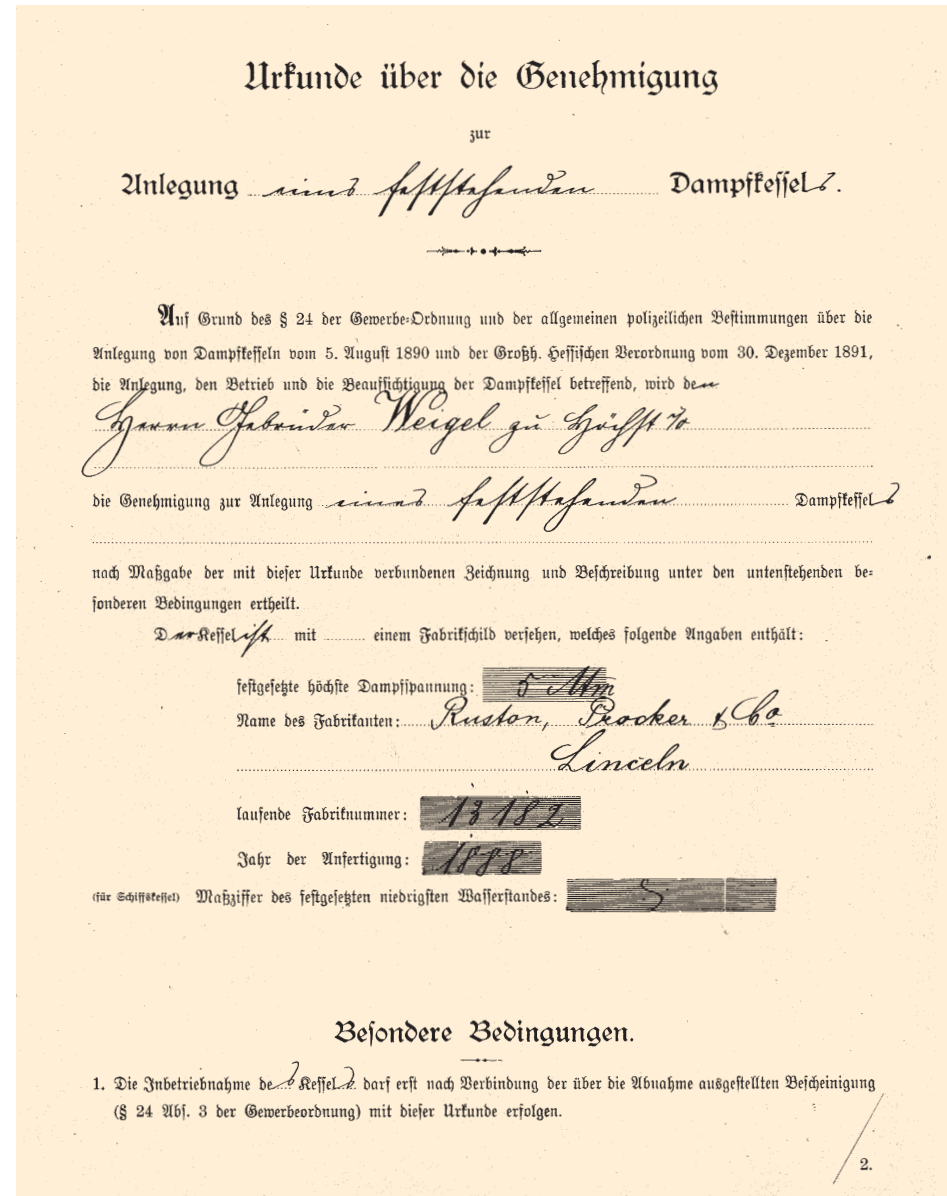 Urkunde über die Genehmigung
zur
Anlegung eines feststehenden Dampfkessels.
Auf Grund des § 24 der Gewerbe-Ordnung und der allgemeinen polizeilichen Bestimmungen über die
Anlegung von Dampfkesseln vom 5. August 1890 und der Großh. Hessischen Verordnung vom 30. Dezember 1891,
die Anlegung, den Betrieb und die Beaufsichtigung der Dampfkessel betreffend, wird den
Herrn Gebrüder Weigel zu Höchst
die Genehmigung zur Anlegung eines feststehenden Dampfkessels
nach Maßgabe der mit dieser Urkunde verbundenen Zeichnung und Beschreibung unter den untenstehenden be-
sonderen Bedingungen ertheilt.
Der Kessel ist mit einem Fabrikschild versehen, welches folgende Angaben enthält:
festgesetzte höchste Dampfspannung: 5 Atm
Name des Fabrikanten: Ruston, Procker & Co
Linceln
laufende Fabriknummer: 13182
Jahr der Anfertigung: 1888
(für Schiffskessel) Maßziffer des festgesetzten niedrigsten Wasserstandes:
Besondere Bedingungen.
1. Die Inbetriebnahme des Kessels darf erst nach Verbindung der über die Abnahme ausgestellten Bescheinigung
(§ 24 Abs. 3 der Gewerbeordnung) mit dieser Urkunde erfolgen.
2.